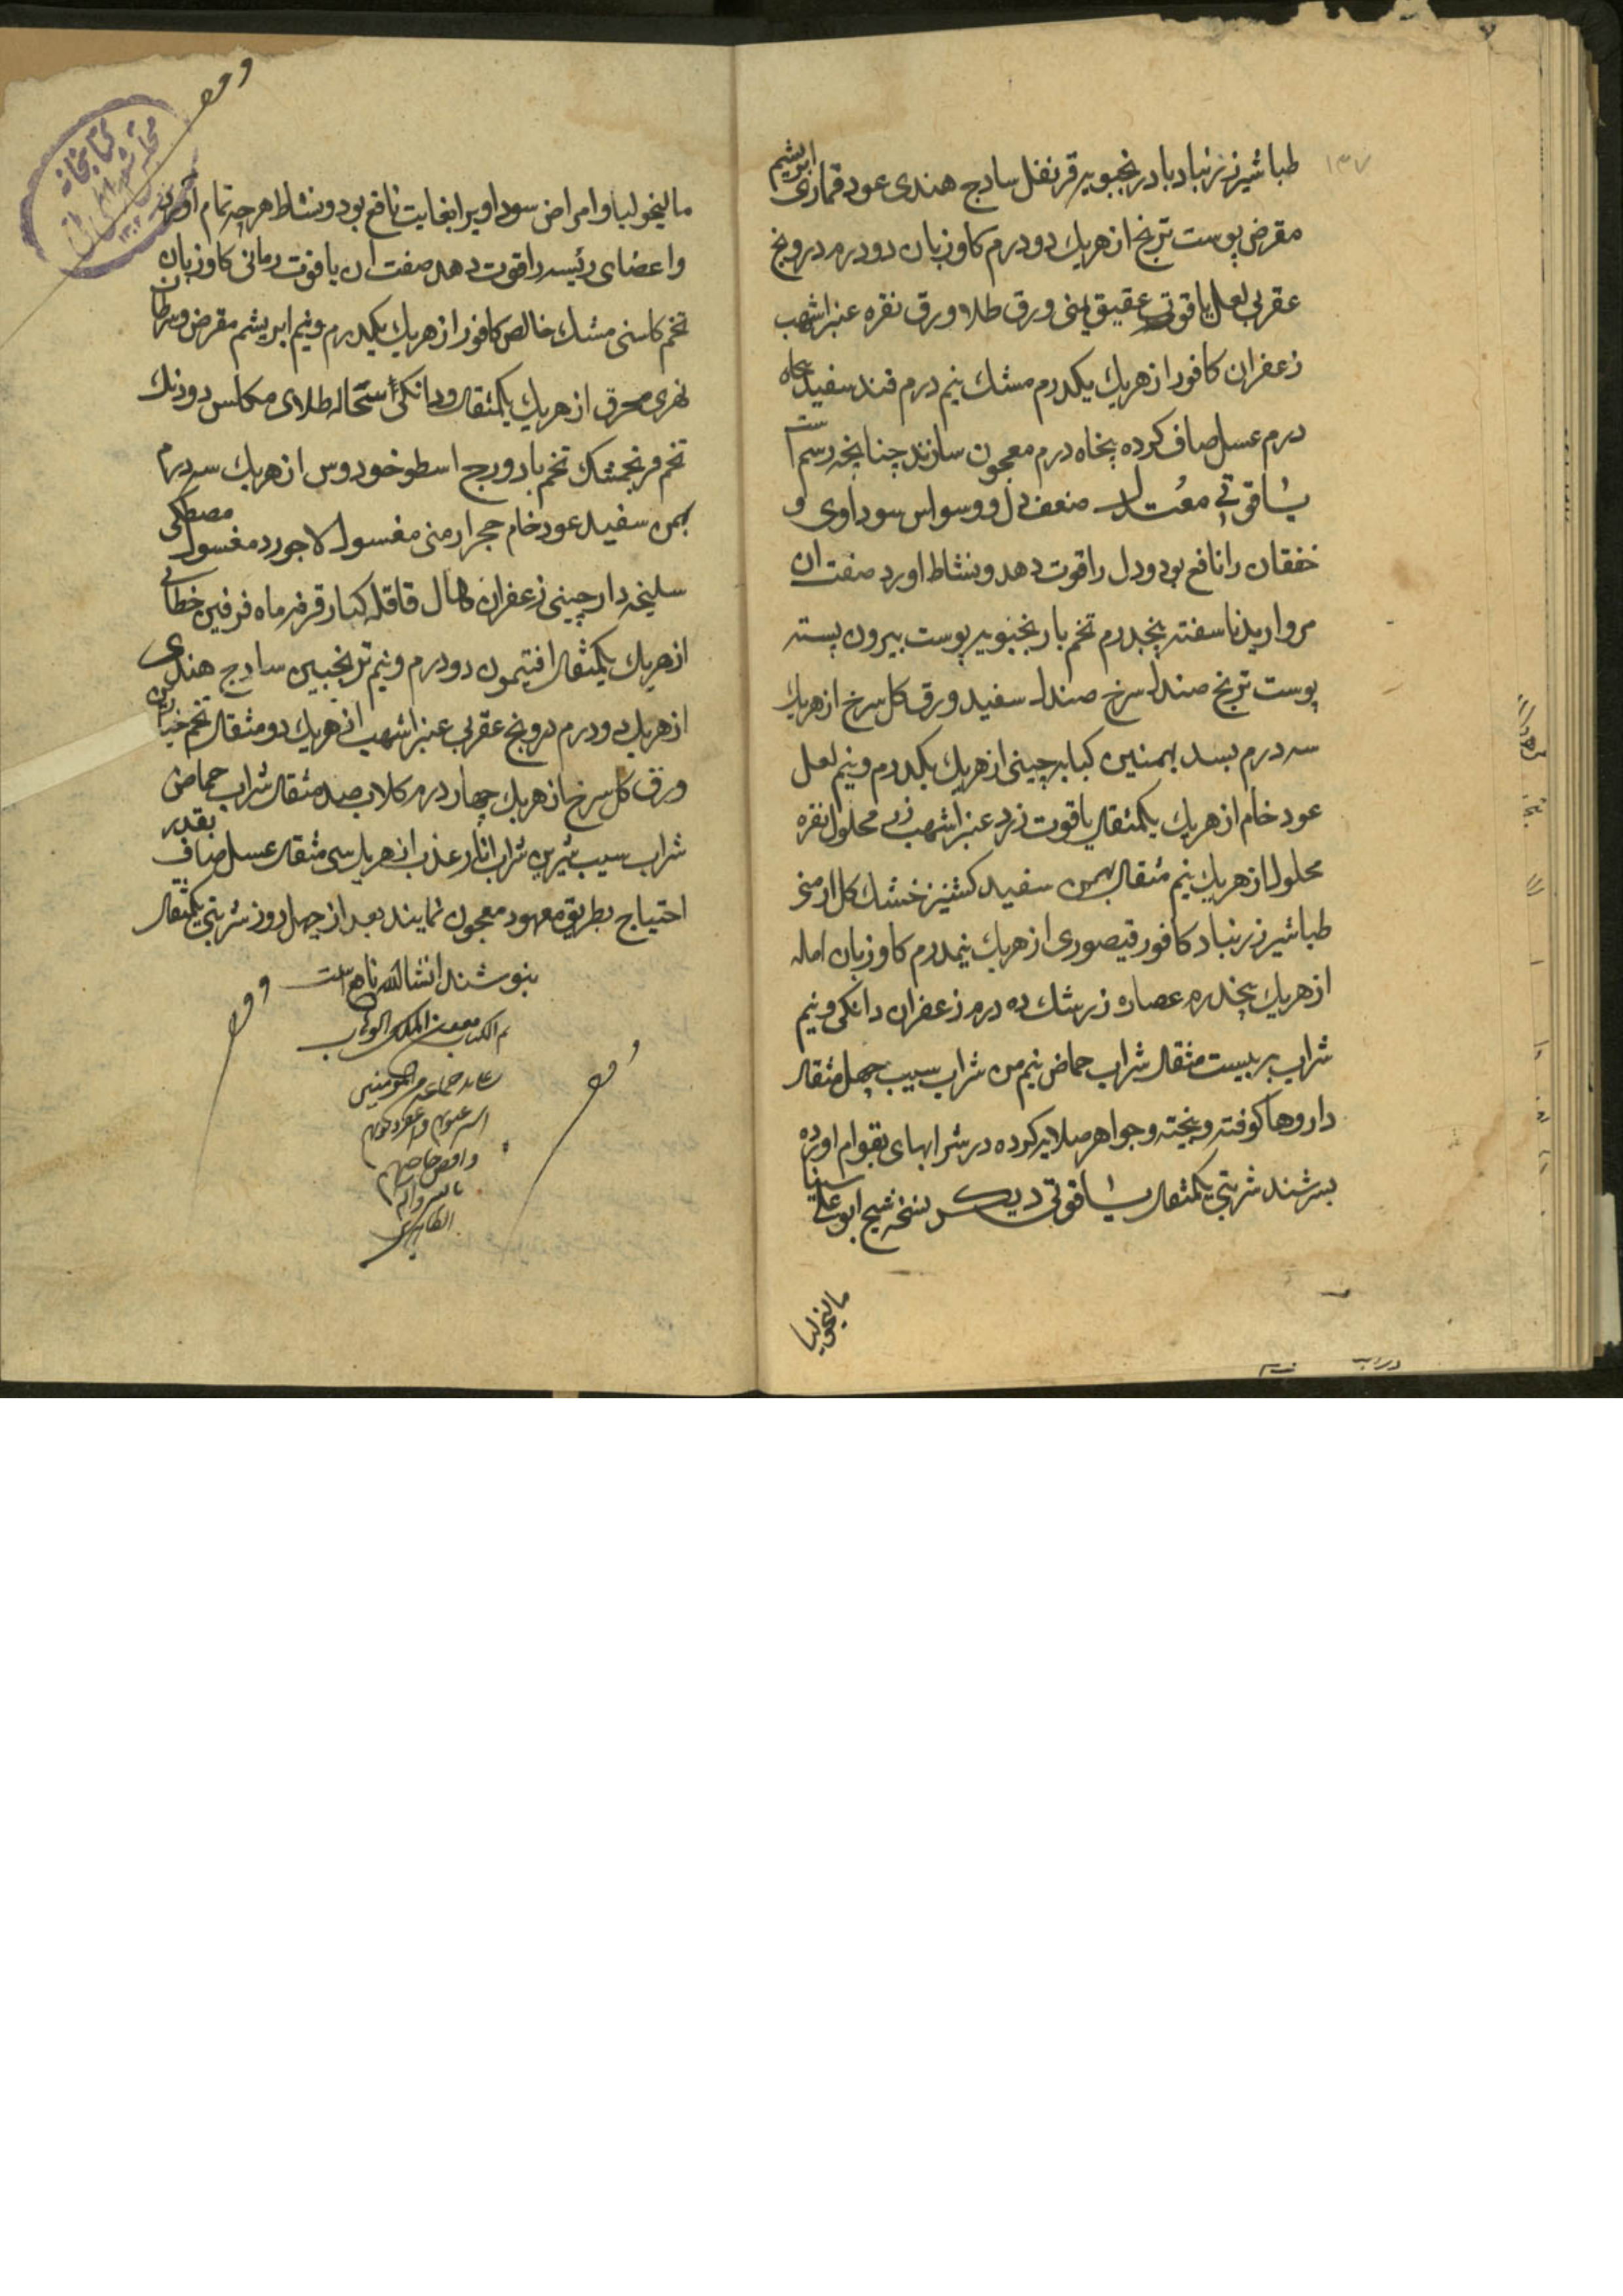 ۱۳۷
طباشیر زرنباد بادرنجبویه قرنفل سادج هندی عود قماری ابریشم
مقرض پوست ترنج از هریك دو درم کاوزبان دو درم درونج
عقربی لعل یاقوت عقیق یمنی ورق طلا ورق نقره عنبر اشهب
زعفران کافور از هریك یکدرم مشك نیم درم قند سفید پنجاه
درم عسل صاف کرده پنجاه درم معجون سازند چنانچه رسم است
یاقوتی معتدل ضعف دل و وسواس سوداوی و
خفقان را نافع بود و دل را قوت دهد و نشاط اورد صفت ان
مروارید ناسفته پنجدرم تخم بادرنجبویه پوست بیرون پسته
پوست ترنج صندل سرخ صندل سفید ورق کل سرخ از هریك
سه درم بسد بهمنین کبابه چینی از هریك یکدرم و نیم لعل
عود خام از هریك یکمثقال یاقوت زرد عنبر اشهب زر محلول نقره
محلول از هریك نیم مثقال بهمن سفید کشنیز خشك کل ارمنی
طباشیر زرنباد کافور قیصوری از هریك نیمدرم کاوزبان امله
از هریك پنجدرم عصاره زرشك ده درم زعفران دانکی و نیم
شراب به بیست مثقال شراب حماض نیم من شراب سیب چهل مثقال
داروها کوفته و بیخته و جواهر صلایه کرده در شرابهای بقوام اورده
بسرشند شربتی یکمثقال یاقوتی دیکر نسخه شیخ ابو علی سینا
مالیخولیا
مالیخولیا و امراض سوداویرا بغایت نافع بود و نشاط هرچه تمام اورد
و اعضای رئیسه را قوت دهد صفت ان یاقوت رمانی کاوزبان
تخم کاسنی مشك خالص کافور از هریك یکدرم و نیم ابریشم مقرض و سرطان
نهری محرق از هریك یکمثقال و دانکی سحاله طلای مکلس دو دنك
تخم فرنجمشك تخم بادروج اسطوخودوس از هریك سه درم
بهمن سفید عود خام حجر ارمنی مغسول لاجورد مغسول مصطکی
سلیخه دارچینی زعفران هال قاقله کبار قرفه ماه فرفین خطائی
از هریك یکمثقال افتیمون دو درم و نیم ترنجبین سادج هندی
از هریك دو درم درونج عقربی عنبر اشهب از هریك دو مثقال تخم خیارین
ورق کل سرخ از هریك چهار درم کلاب صد مثقال شراب حماض
شراب سیب شیرین شراب انار عذب از هریك سی مثقال عسل صافی بقدر
احتیاج بطریق معهود معجون نمایند بعد از چهل روز شربتی یکمثقال
بنوشند انشاالله نافع است
تم الکتاب بعون الملك الوهاب
کتابخانه